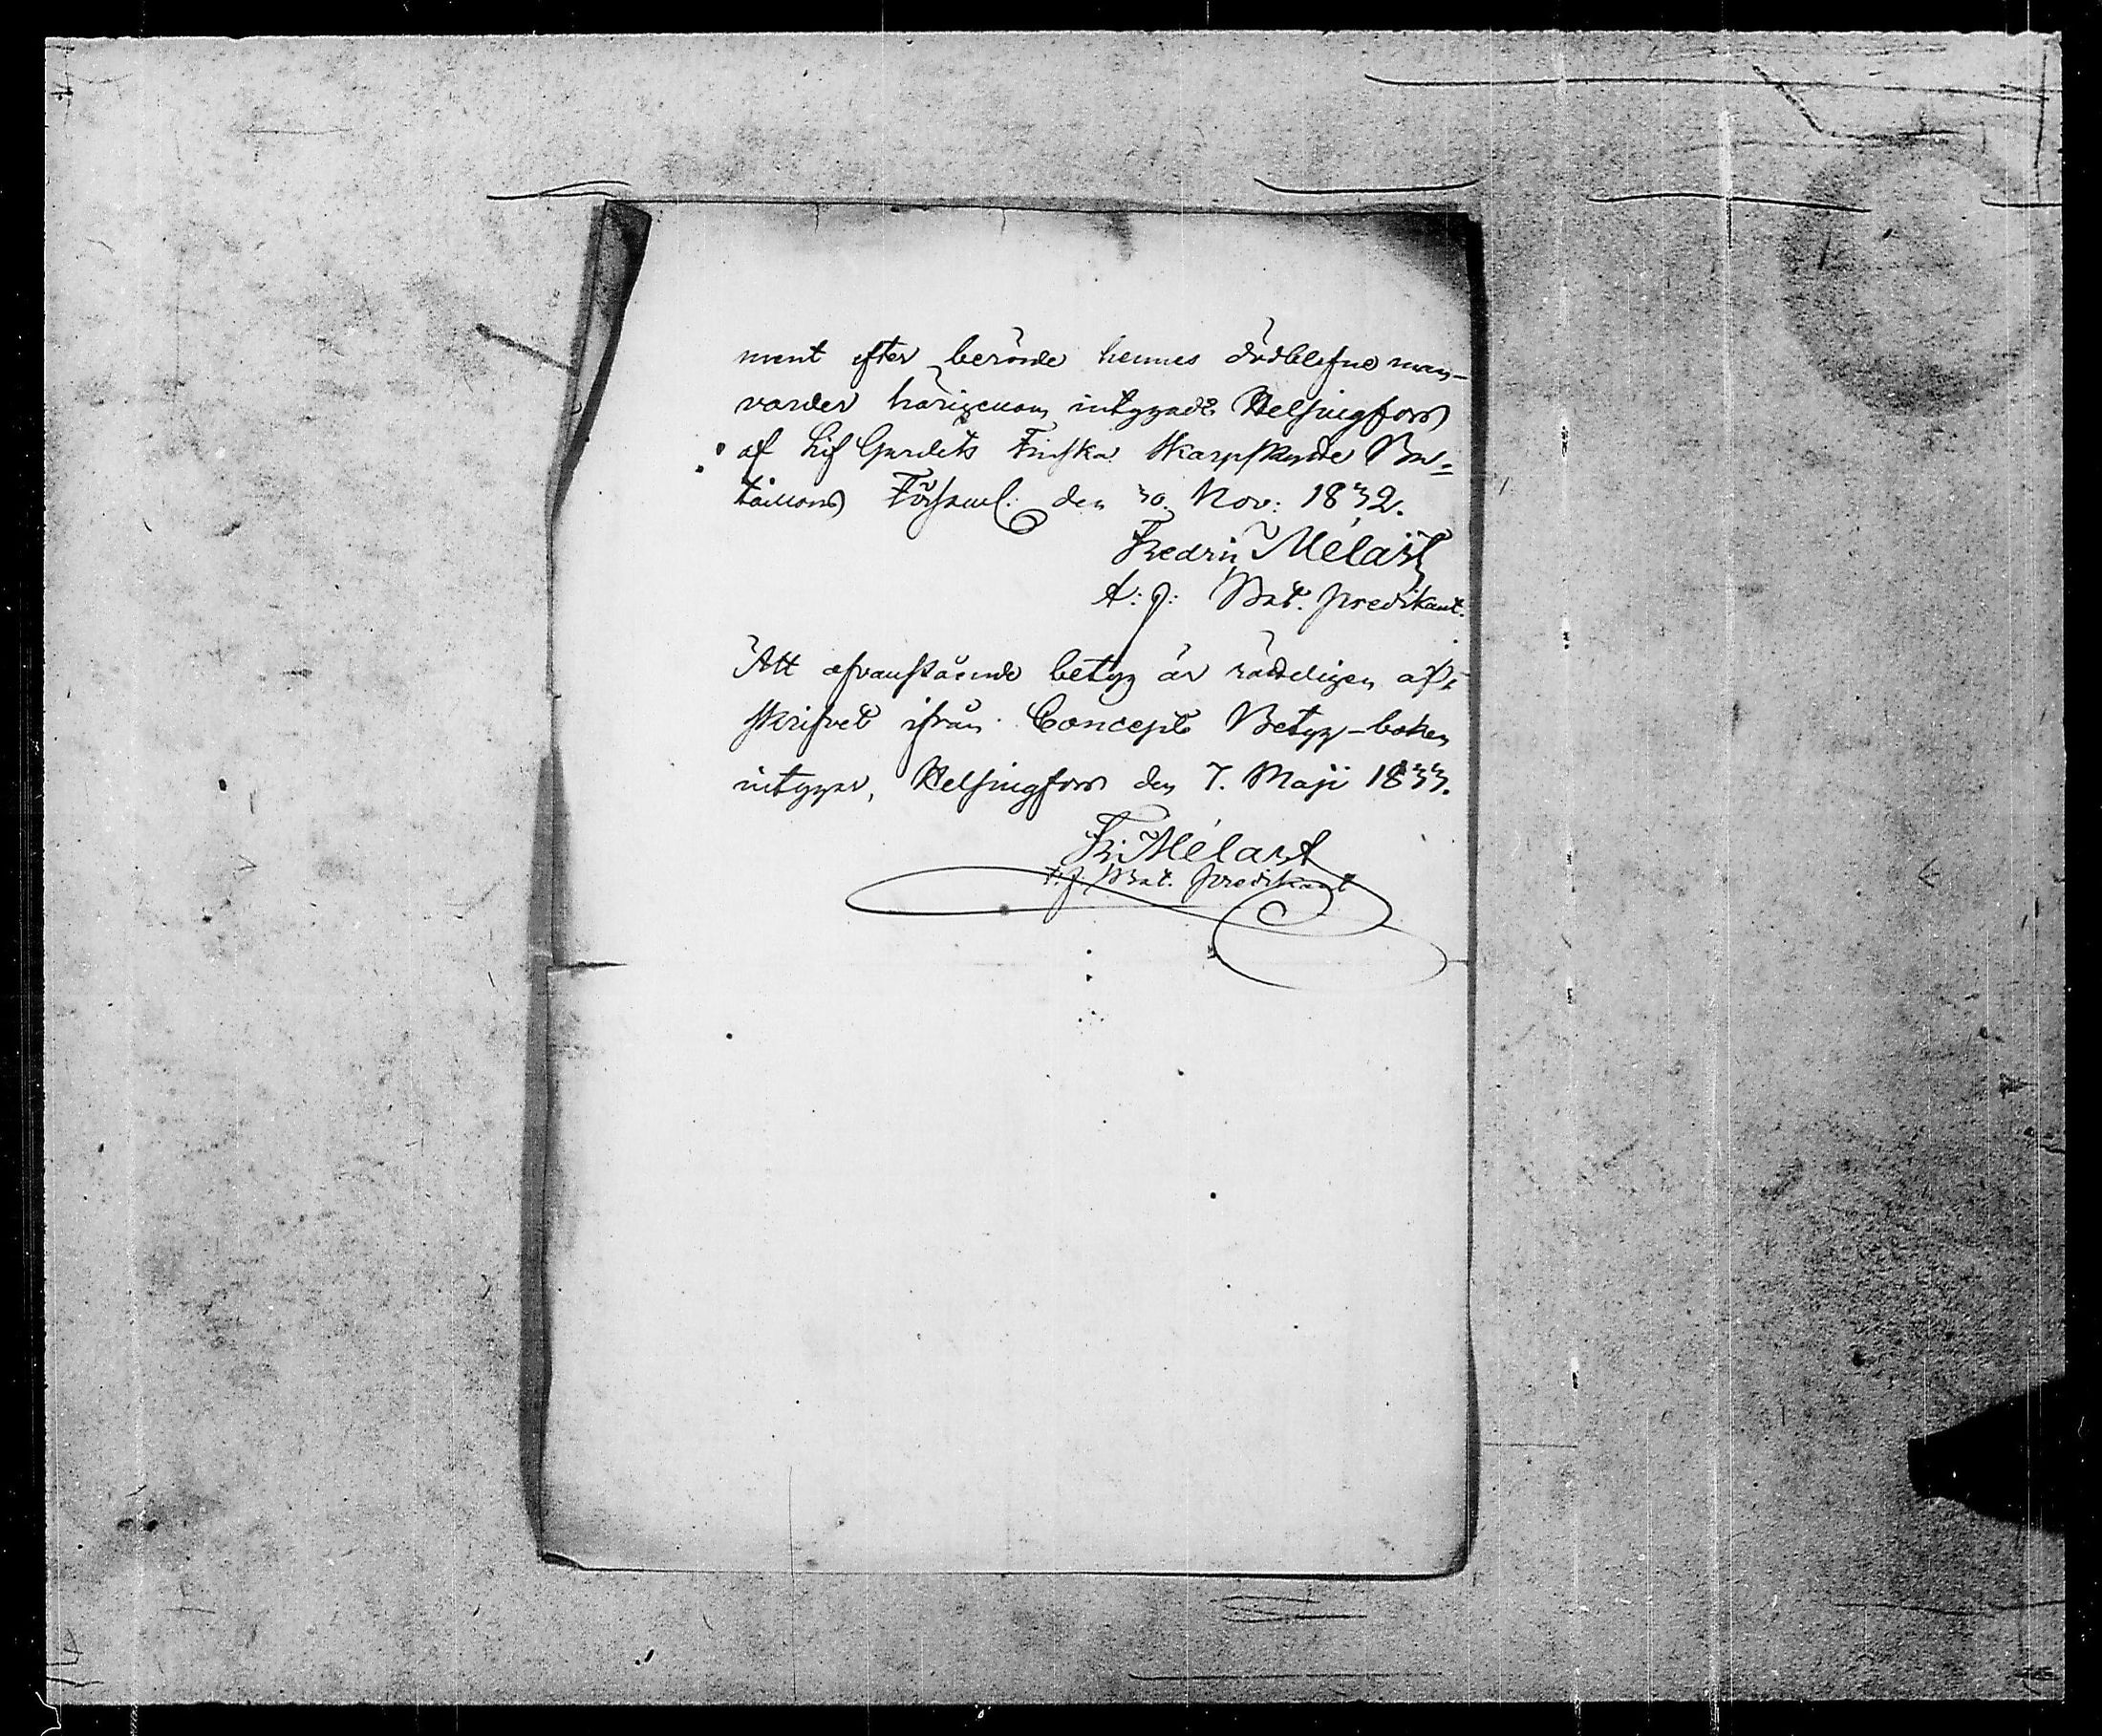 ment efter berörde hennes dödblefne man-
varder härigenom intygadt. Helsingfors
af Lif Gardets Finska Skarpskytte Ba=
taillons Församl: den 30. Nov: 1832.
Fredric Melart
t: f: Bat. predikant.
Att ofvanstående betyg är rätteligen af=
skrifvet ifrån Concept Betyg-boken
intygar, Helsingfors den 7. Maji 1833.
Fr: Melart
t. f. Bat. predikant